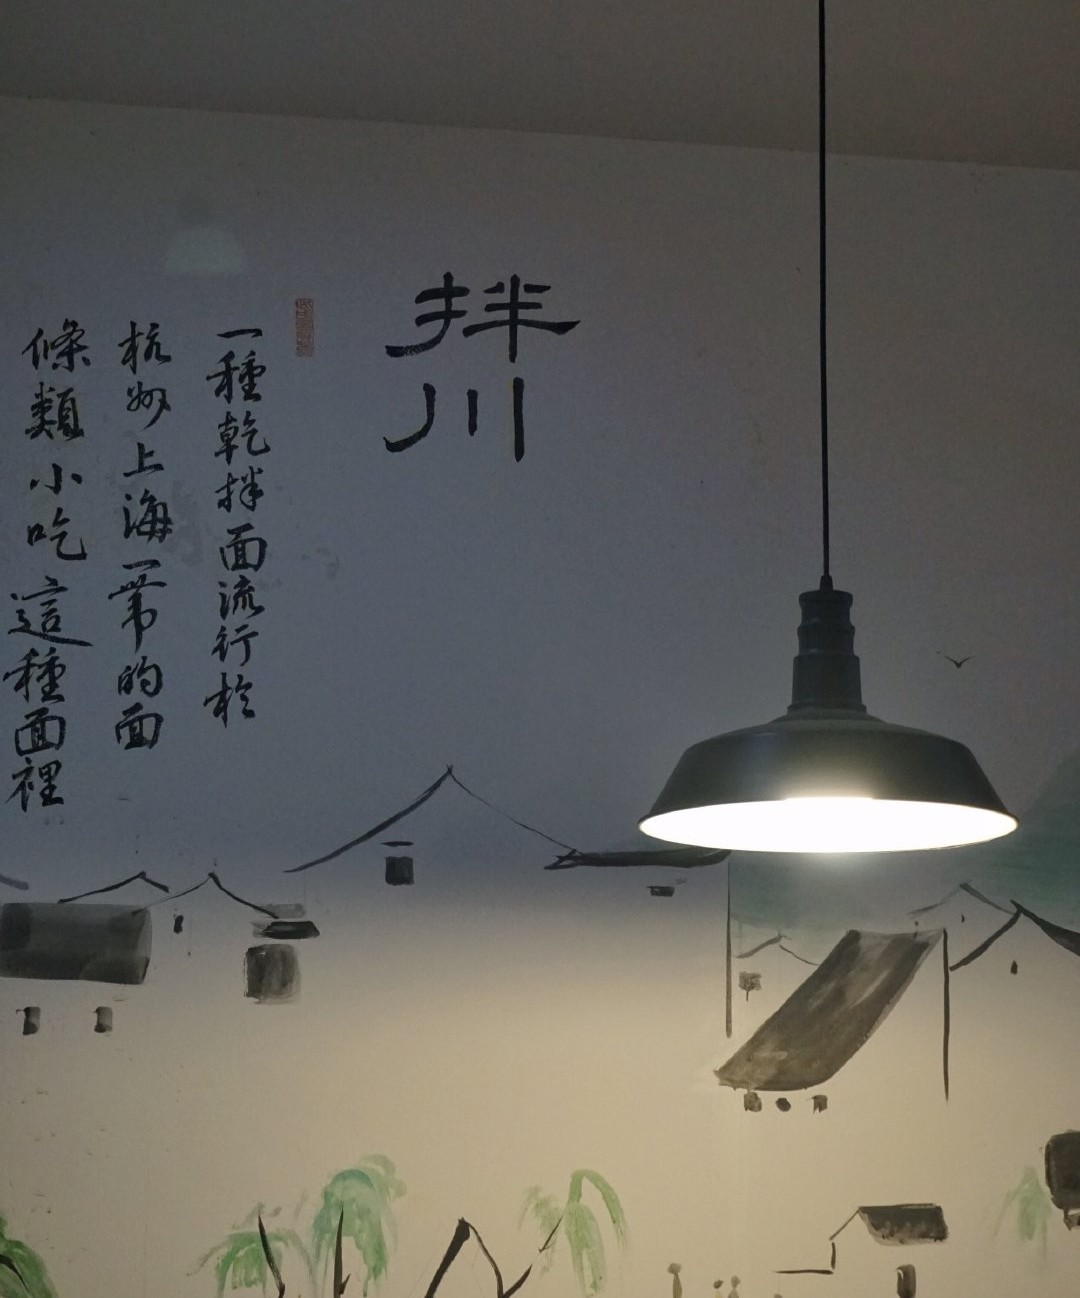 拌川
一種乾拌面流行於
杭州上海一带的面
條類小吃這種面裡